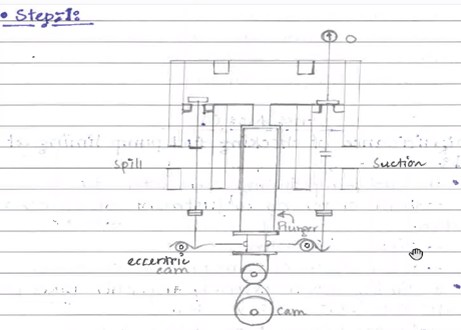 • Step-1:
O
Spill
Suction
Plunger
eccentric
cam
cam